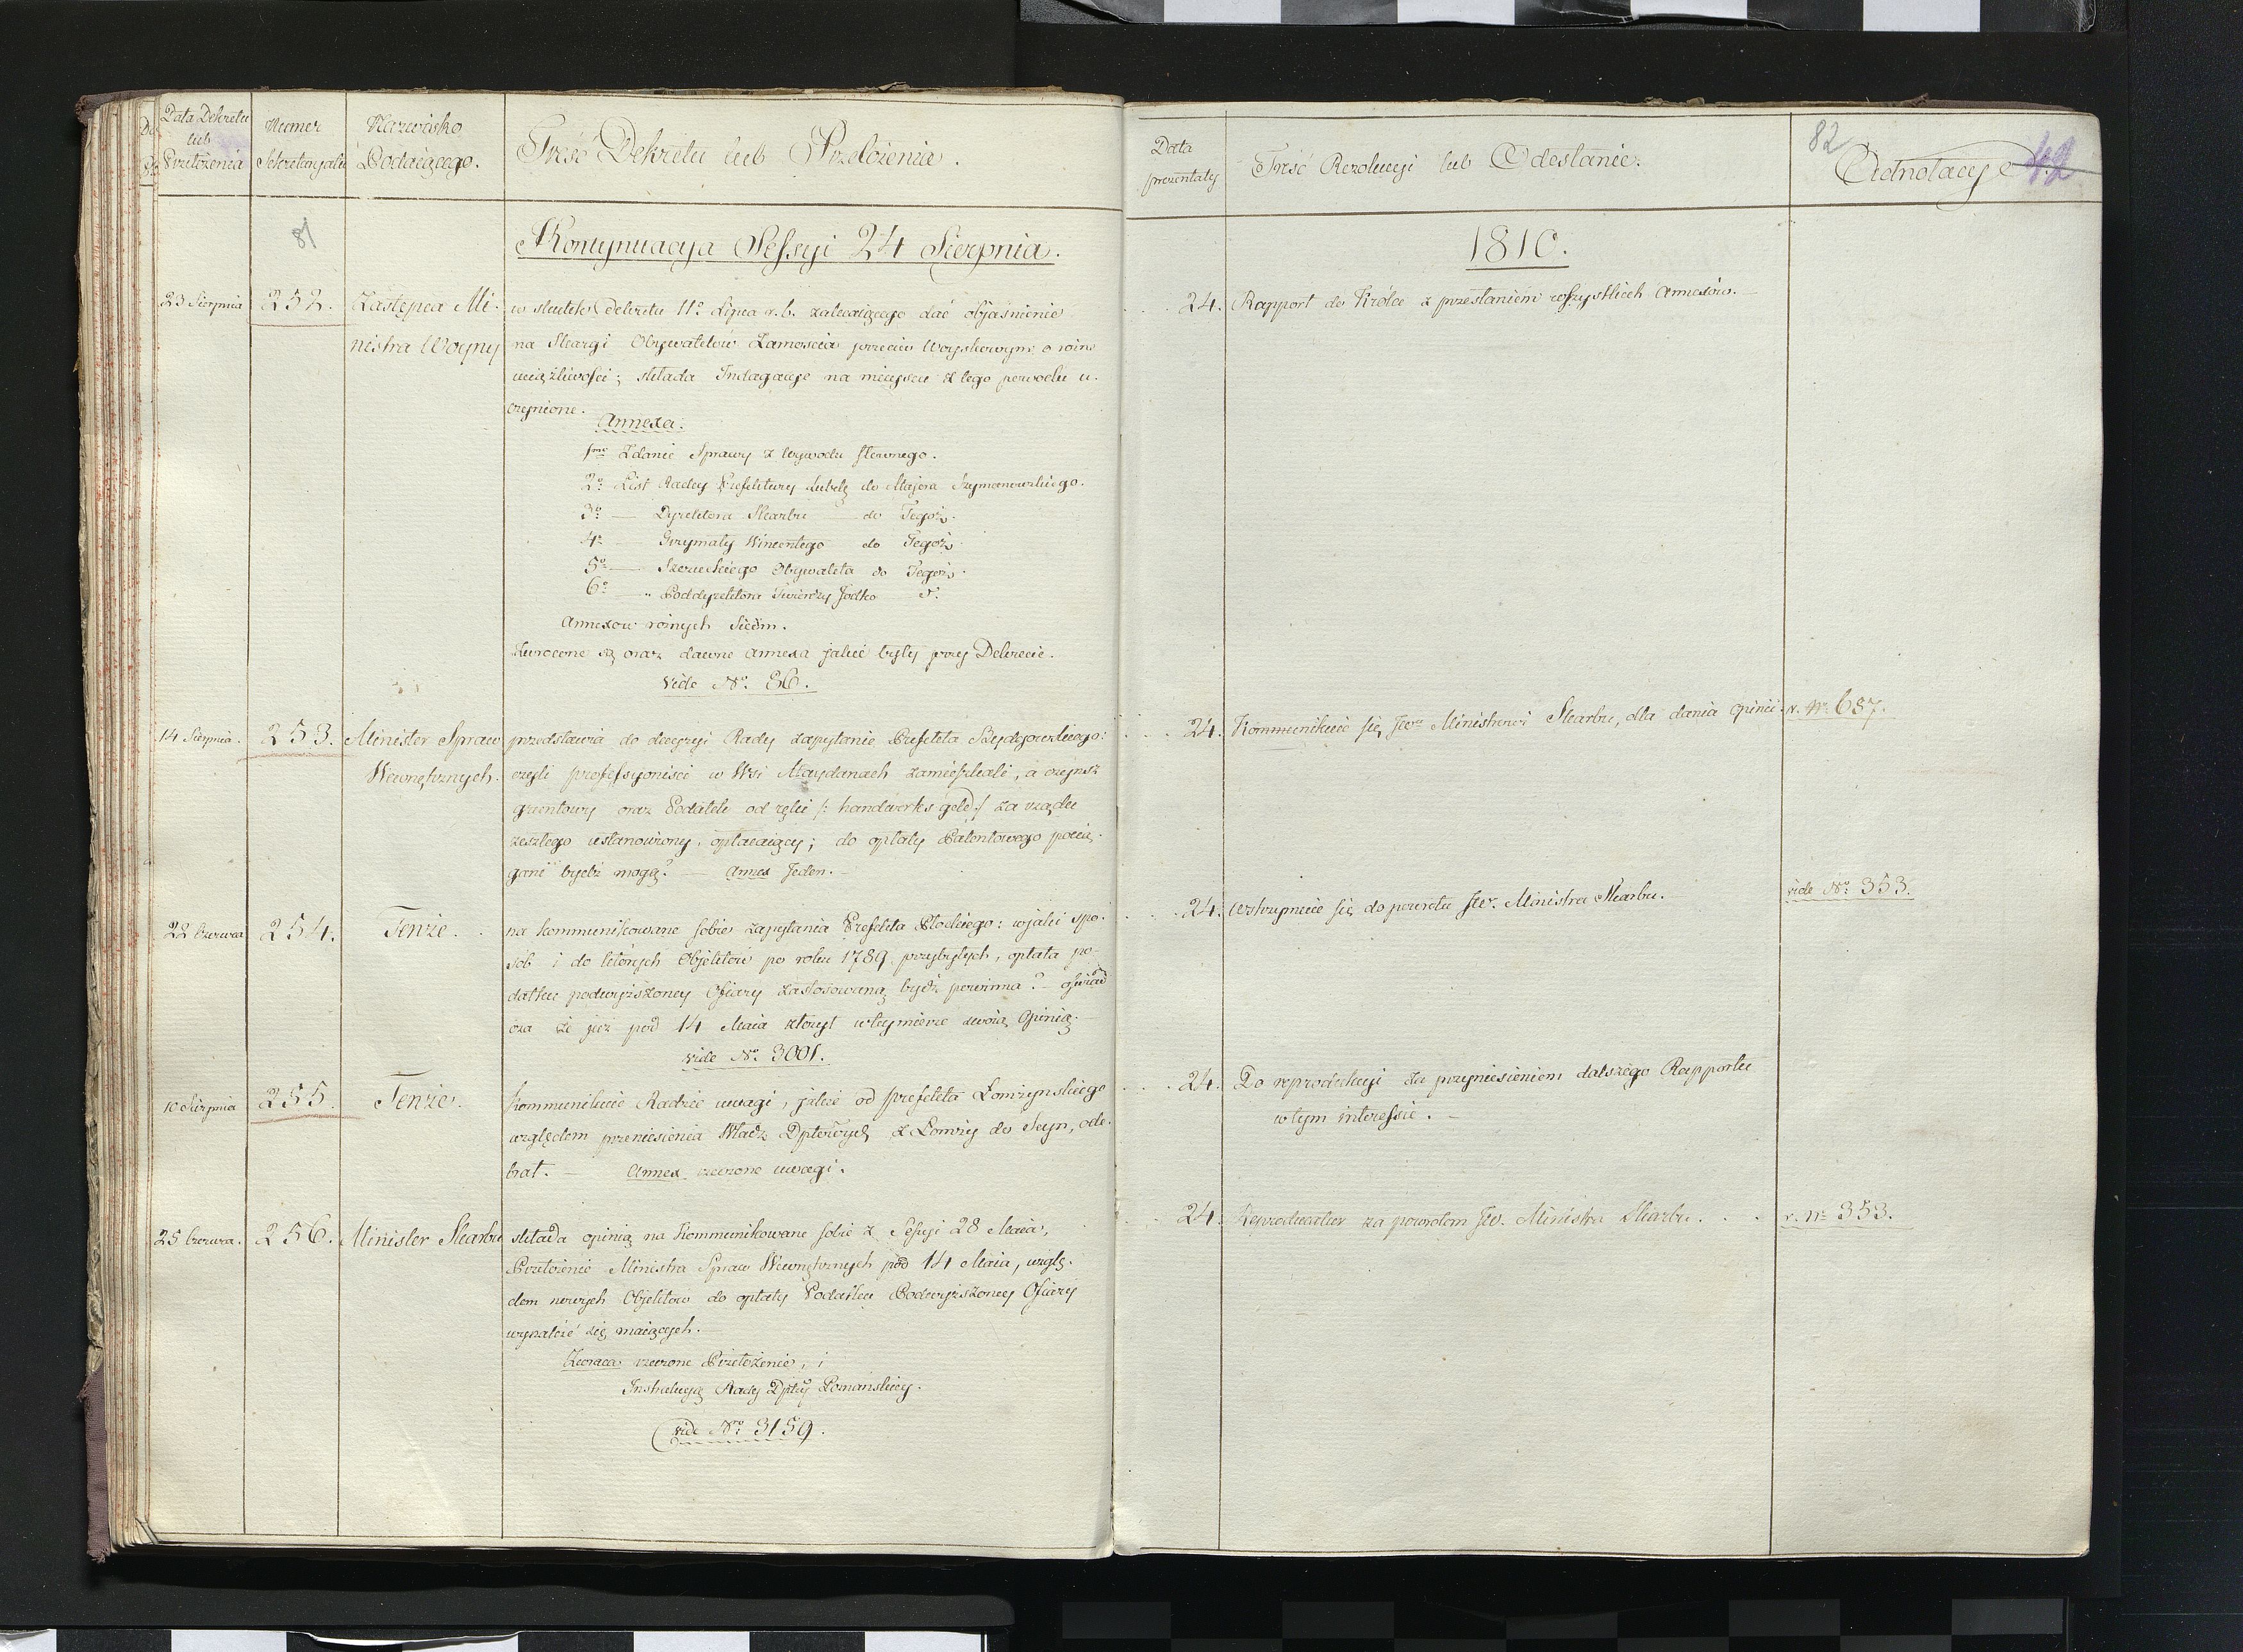 Data Dekretu
lub
Przełożenia
Numer
Sekretaryatu
Nazwisko
Podaiącego.
Treść Dekretu lub Przełożenia.
81
Kontynuacya Sessyi 24 Sierpnia.
23 Sierpnia
252.
Zastępca Mi-
nistra Woyny
w skutek Dekretu 11º Lipca r. b. zalecaiącego dać objaśnienie
na Skargi Obywatelów Zamościa przeciw Woyskowym o różne
uciążliwości; składa Indagacye na mieyscu z tego powodu u-
czynione.
Annexa.
1mo Zdanie Sprawy z wywodu słownego.
2º List Rady Prefektury Lubelę do Majora Szymanowskiego.
3º — Dyrektora Skarbu — do Tegoż.
4º — Grzymały Wincentego do Tegoż.
5º — Obywatela do Tegoż.
6º — " Poddyrektora Twierdzy Jodko dº.
Annexow rożnych Siedm.
Zwrocone są oraz dawne annexa jakie były przy Dekrecie.
vide Nº 86.
14 Sierpnia.
253.
Minister Spraw
Wewnętrznych.
przedstawia do decyzyi Rady zapytanie Prefekta Bydgowskiego:
czyli professyoniści w Wsi Maydanach zamieszkali, a czynsz
gruntowy oraz Podatek od ręki /: handwerks geld :/ za rządu
zeszłego ustanowiony, opłacaiący; do opłaty Patentowego pocią-
gani bydź mogą? — Annex Jeden. —
22 Czerwca
254.
Tenże.
na kommunikowane sobie zapytania Prefekta Płockiego: w jaki spo-
sob i do których Objektow po roku 1789 przybyłych, opłata po-
datku podwyższoney Ofiary zastosowaną bydź powinna? — oświad
cza że już pod 14 Maia złożył w tey mierze swoią Opinią. —
vide Nº 3001.
10 Sierpnia
255.
Tenże.
kommunikuie Radzie uwagi, jakie od prefekta Łomżynskiego
względem przeniesienia Władz Dptowych z Łomży do Seyn, ode-
brał. — Annex rzeczone uwagi.
25 Czerwca.
256.
Minister Skarbu
składa opinią na Kommunikowane sobie z Sessyi 28 Maia,
Przełożenie Ministra Spraw Wewnętrznych pod 14 Maia, wzglę-
dem nowych Objektow do opłaty Podatku Podwyższoney Ofiary
wynaleść się maiących. —
Zwraca rzeczone Przełożenie, i
Instrukcyą Rady Dptu Poznańskiey.
(vide Nro 3159.
Data
prezentaty
Treść Rezolucyi lub Odesłanie.
82
Adnotacye
42
1810.
24. Rapport do Króla z przesłaniem wszystkich Annexów. —
24. Kommunikuie się JWmu Ministrowi Skarbu, dla dania Opinii.
v. Nº 687.
24. Wstrzymuie się do powrotu JW. Ministra Skarbu.
vide Nº 353.
24. Do reprodukcyi za przyniesieniem dalszego Rapportu
w tym interessie. —
24. Reproducatur za powrotem JW. Ministra Skarbu. . .
v. Nº 353.